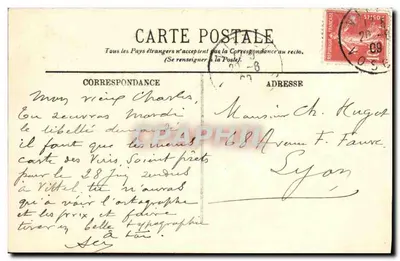 CARTE POSTALE
Tous les Pays étrangers n'acceptent pas la Correspondance au recto.
(Se renseigner à la Poste)
CORRESPONDANCE
ADRESSE
Mon vieux Charles,
En recevras Mardi
le libellé
il faut que les menus
carte des Vins, soient prêts
pour le 28 Juin rendus
à Vittel, tu n'auras
qu'à voir l'ortographe
et les prix et faire
tirer en belle typographie
à toi
Monsieur Ch. Hugot
68 Avenue F. Faure
Lyon